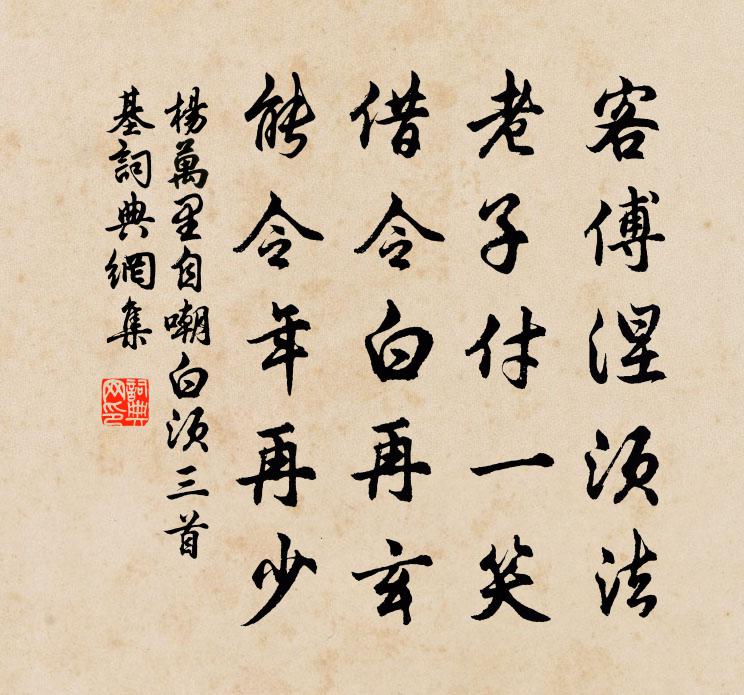 客傅涅须法
老子付一笑
借令白再玄
能令年再少
楊萬里自嘲白须三首
基詞典網集
詞典网印